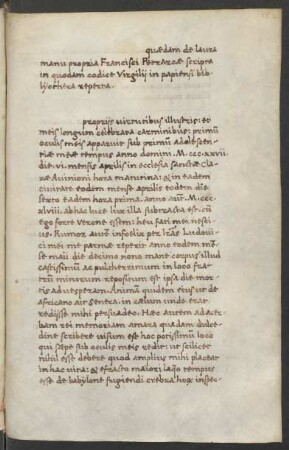 quædam de laura
manu propria Francisci Petrarcæ scripta
in quodam codice Virgilij in papiensi bib-
lyotheca reperta.
propriis uirtutibus illustris: et
meis longum celebrata carminibus: primū
oculis meis apparuit sub primū adolescen-
tiæ meæ tempus anno domini .M.ccc.xxvii
die .vi. mensis aprilis in ecclesia sanctæ Cla-
ræ Auinioni hora matutina: & in eadem
ciuitate eodem mense aprilis eodem die
sexto eadem hora prima. anno autē .M.ccc
xlviii. ab hac luce lux illa subtracta est. cū
ego forte Veronæ essem: heu fati mei nesci-
us. Rumor autē infelix per lr̄as Ludoui-
ci mei me parmæ reperit anno eodem mēn-
se maii die decimo nono mane corpus illud
castissimū ac pulcherrimum in loco fratrū
minorum repositum est ipsa die mor-
tis ad uesperam. Animā quidem eius ut de
africano ait Seneca: in cælum unde erat
redisse mihi persuadeo. Hæc autem ad acer-
bam rei memoriam amara quadam dulce-
dine scribere uisum est hoc potissimū loco
qui sæpe sub oculis meis redit: ut scilicet
nihil esse debere quod amplius mihi placeat
in hac uita: & effracto maiori laqo tempus
esse de babylone fugiendi crebra hoꝝ inspec-